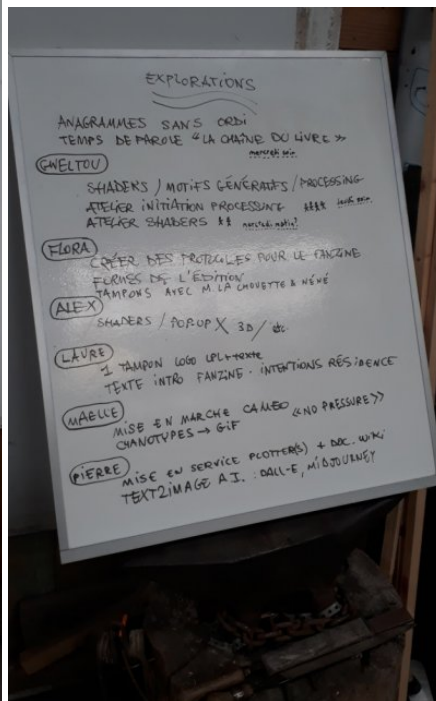 EXPLORATIONS
ANAGRAMMES SANS ORDI
TEMPS DE PAROLE "LA CHAÎNE DU LIVRE"
mercredi soir
GWELTOU
SHADERS / MOTIFS GÉNÉRATIFS / PROCESSING
ATELIER INITIATION PROCESSING **** jeudi soir
ATELIER SHADERS ** mercredi matin?
FLORA
CRÉER DES PROTOCOLES POUR LE FANZINE
FORMES DE L'ÉDITION
TAMPONS AVEC M. LA CHOUETTE & NÉNÉ
ALEX
SHADERS / POP-UP X 3D /
LAURE
1 TAMPON LOGO LPL + texte
TEXTE INTRO FANZINE - INTENTIONS RÉSIDENCE
MAELLE
MISE EN MARCHE CAMEO «NO PRESSURE»
CYANOTYPES → GIF
PIERRE
MISE EN SERVICE PLOTTER(S) + DOC. WIKI
TEXT2IMAGE A.I. : DALL-E, MIDJOURNEY